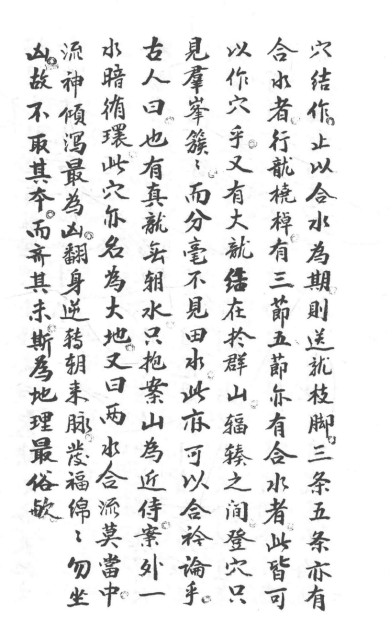 穴結作。止以合水為期。則送龍枝脚。三条五条亦有
合水者。行龍橈棹。有三節五節亦有合水者。此皆可
以作穴乎。又有大龍結在於群山辐辏之間。登穴只
見羣峯簇〻。而分毫不見田水。此亦可以合衿論乎。
古人曰。也有真龍無朝水。只抱案山為近侍。案外一
水暗循環。此穴亦名為大地。又曰。两水合流莫當中。
流神傾瀉最為凶。翻身逆转朝来脉。發福绵〻勿坐
凶。故不取其夲。而齐其末。斯為地理最俗欤